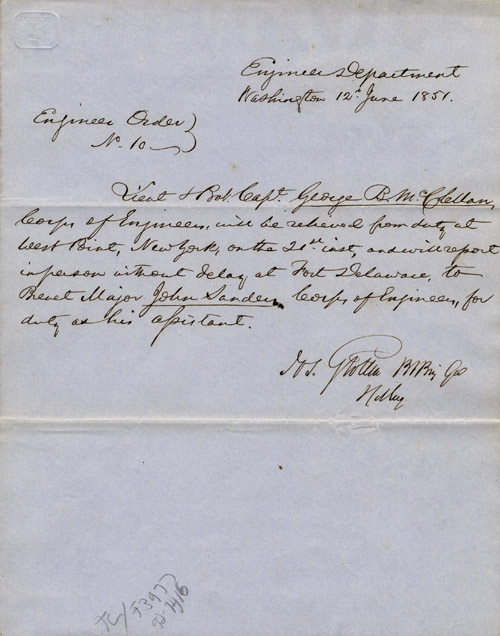 Engineer Department
Washington 12th June 1851.
Engineer Order
No. 10
Lieut & Bvt. Capt. George B. McClellan,
Corps of Engineers, will be relieved from duty at
West Point, New York, on the 21st inst, and will report
in person without delay at Fort Delaware, to
Brevet Major John Sanders, Corps of Engineers, for
duty as his assistant.
Jos. G Totten Bt Brig Ge